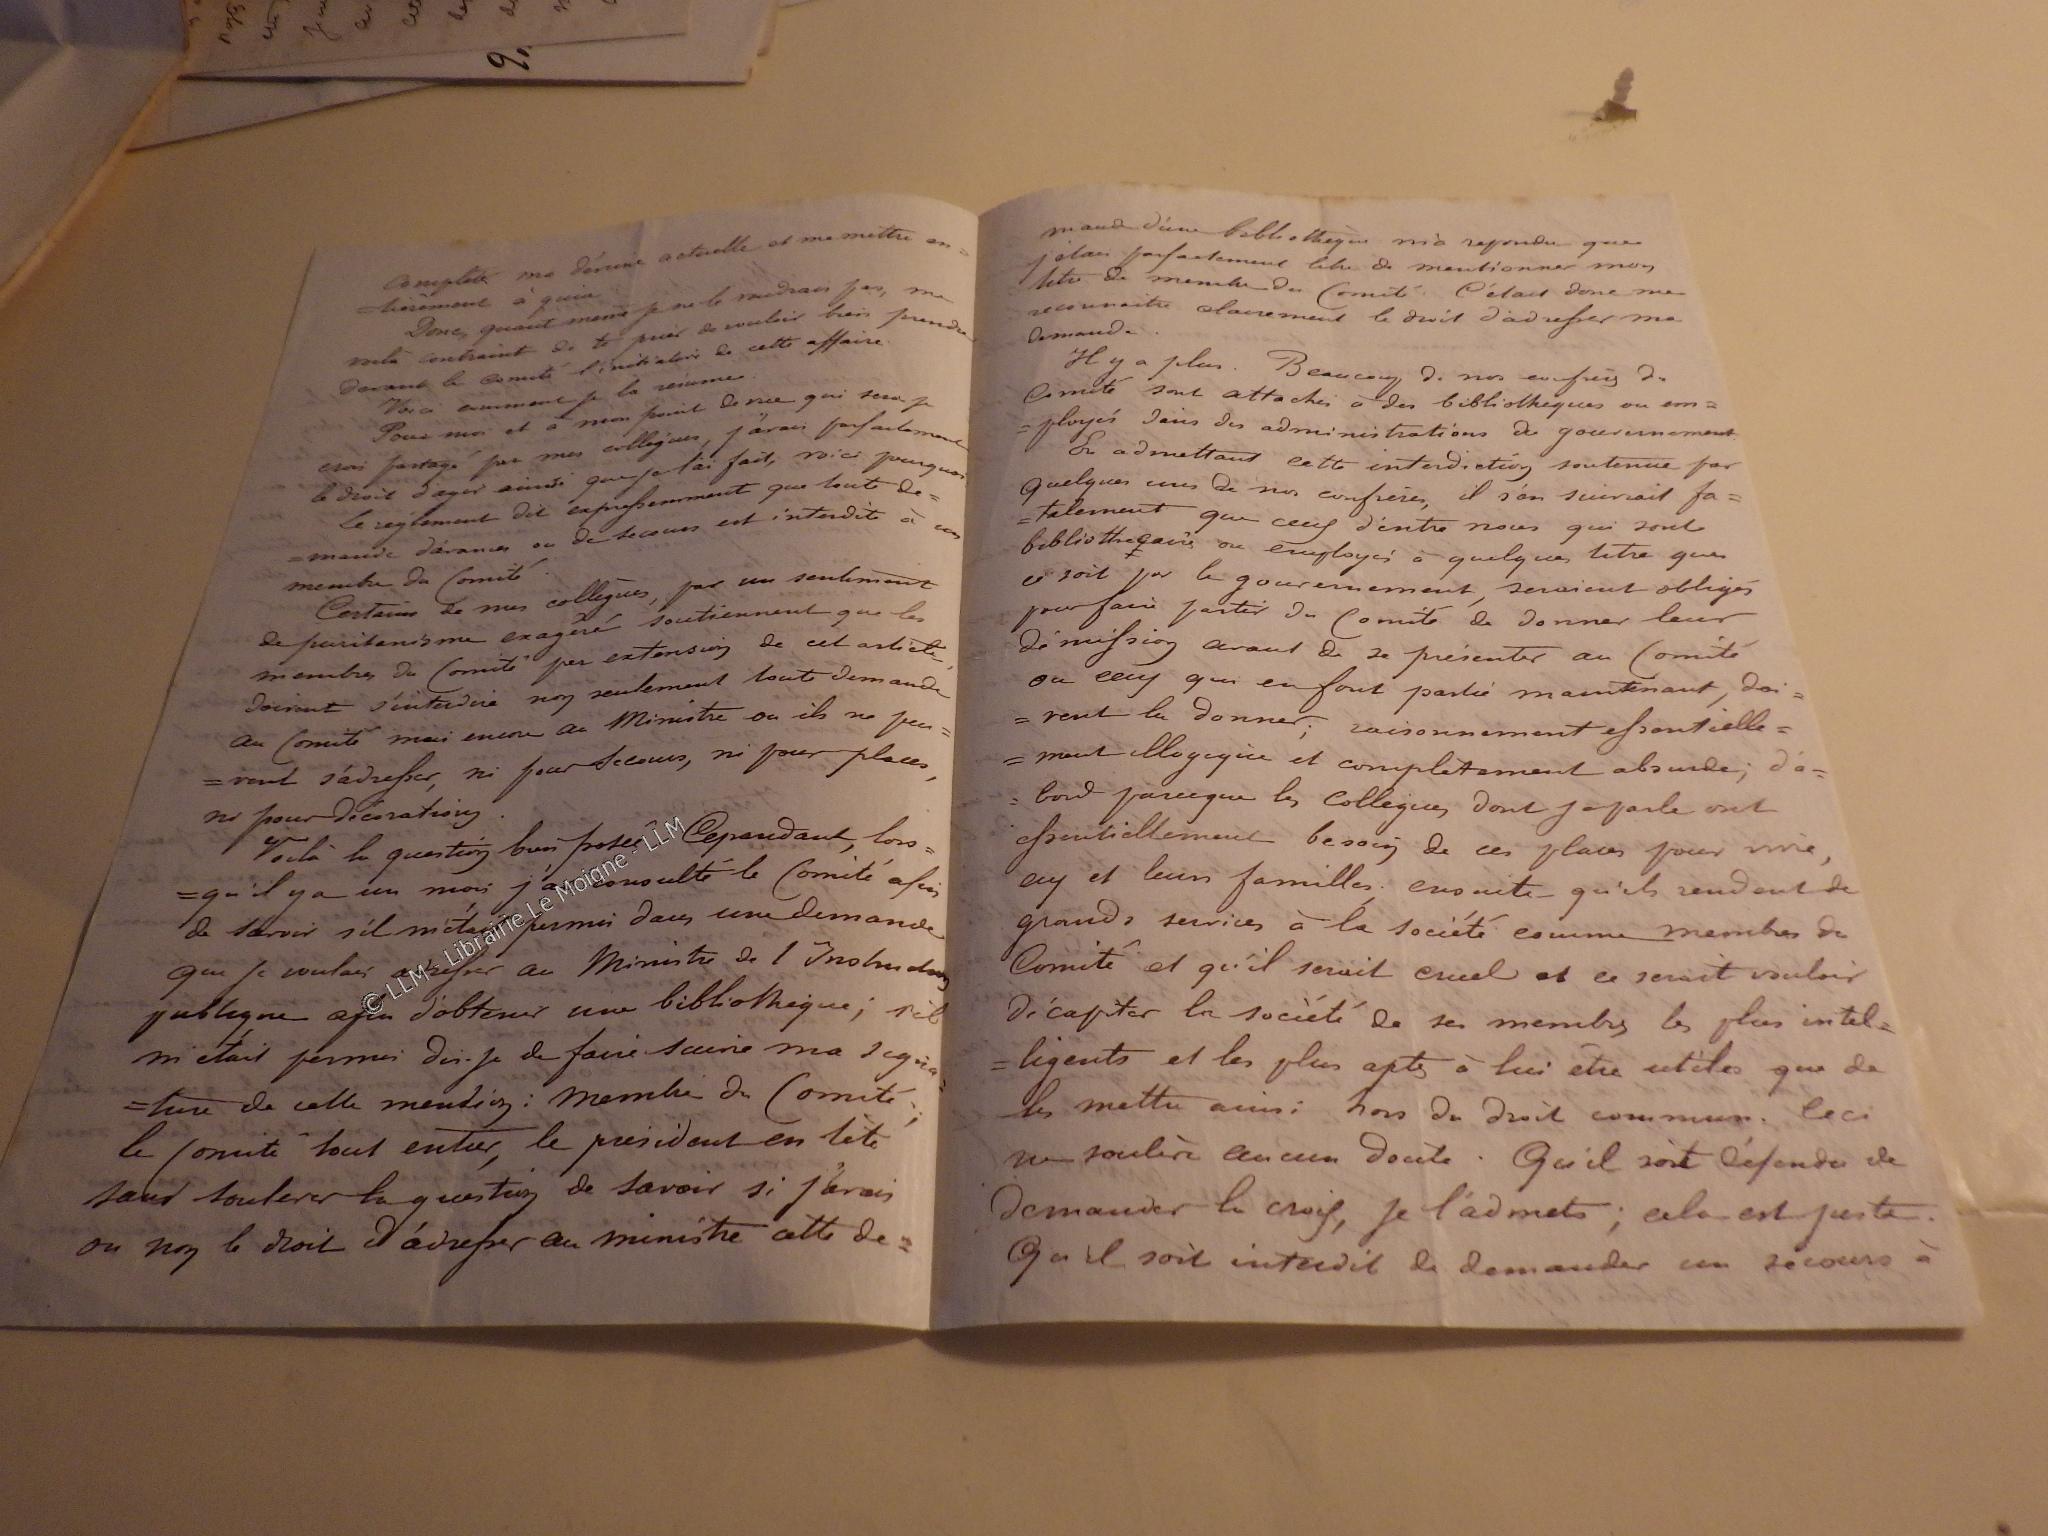 complète ma débine actuelle et me mettre en=
=tièrement à quia.
Donc, quant même je ne le voudrais pas, me
voilà contraint de te prier de vouloir bien prendre
devant le comité l'initiative de cette affaire.
Voici comment je la résume.
Pour moi et à mon point de vue qui sera je
crois partagé par mes collègues, j'avais parfaitement
le droit d'agir ainsi que je l'ai fait, voici pourquoi
Le règlement dit expressemment que toute de=
=mande d'avances ou de secours est interdite à un
membre du Comité.
Certains de mes collègues, par un sentiment
de puritanisme exagéré soutiennent que les
membres du Comité par extension de cet article,
doivent s'interdire non seulement toute demande
au Comité mais encore au Ministre ou ils ne peu=
=vent s'adresser, ni pour secours, ni pour places,
ni pour décorations.
Voilà la question bien posée. Cependant, lors=
=qu'il y a un mois j'ai consulté le Comité afin
de savoir s'il m'était permis dans une demande
que je voulais adresser au Ministre de l'Instruction
publique afin d'obtenir une bibliothèque; s'il
m'était permis dis-je de faire suivre ma signa=
=ture de cette mention: membre du Comité;
le Comité tout entier, le président en tête
sans soulever la question de savoir si j'avais
ou non le droit d'adresser au ministre cette de=
mande d'une bibliothèque m'a répondu que
j'étais parfaitement libre de mentionner mon
titre de membre du Comité. C'était donc me
reconnaitre clairement le droit d'adresser ma
demande.
Il y a plus. Beaucoup de nos confrères du
Comité sont attachés à des bibliothèques ou em=
=ployés dans des administrations du gouvernement
En admettant cette interdiction soutenue par
quelques uns de nos confrères, il s'en suivrait fa=
=talement que ceux d'entre nous qui sont
bibliothécaires ou employés à quelques titre que
ce soit par le gouvernement, seraient obligés
pour faire partie du Comité de donner leur
démission avant de se présenter au Comité
ou ceux qui en font partie maintenant, doi=
=vent la donner; raisonnement essentielle=
=ment illogique et complètement absurde; d'a=
=bord parceque les collègues dont je parle ont
essentiellement besoin de ces places pour vivre,
eux et leurs familles; ensuite qu'ils rendent de
grands services à la société comme membres du
Comité et qu'il serait cruel et ce serait vouloir
décapiter la société de ses membres les plus intel=
=ligents et les plus aptes à lui être utiles que de
les mettre ainsi hors du droit commun. Ceci
ne soulève aucun doute. Qu'il soit défendu de
demander la croix, je l'admets; cela est juste.
Qu'il soit interdit de demander un secours à
© LLM - Librairie Le Moigne - LLM